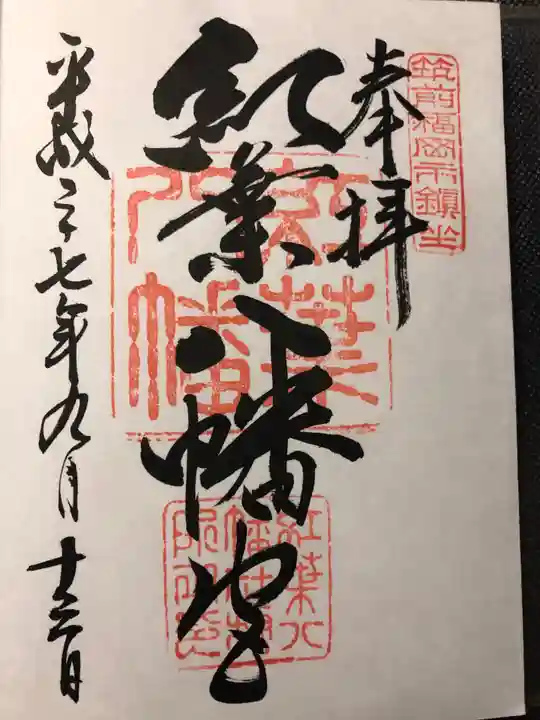 筑前福岡市鎮坐
奉拝
紅葉八幡宮
紅葉八幡
紅葉八幡
平成二十七年九月十三日